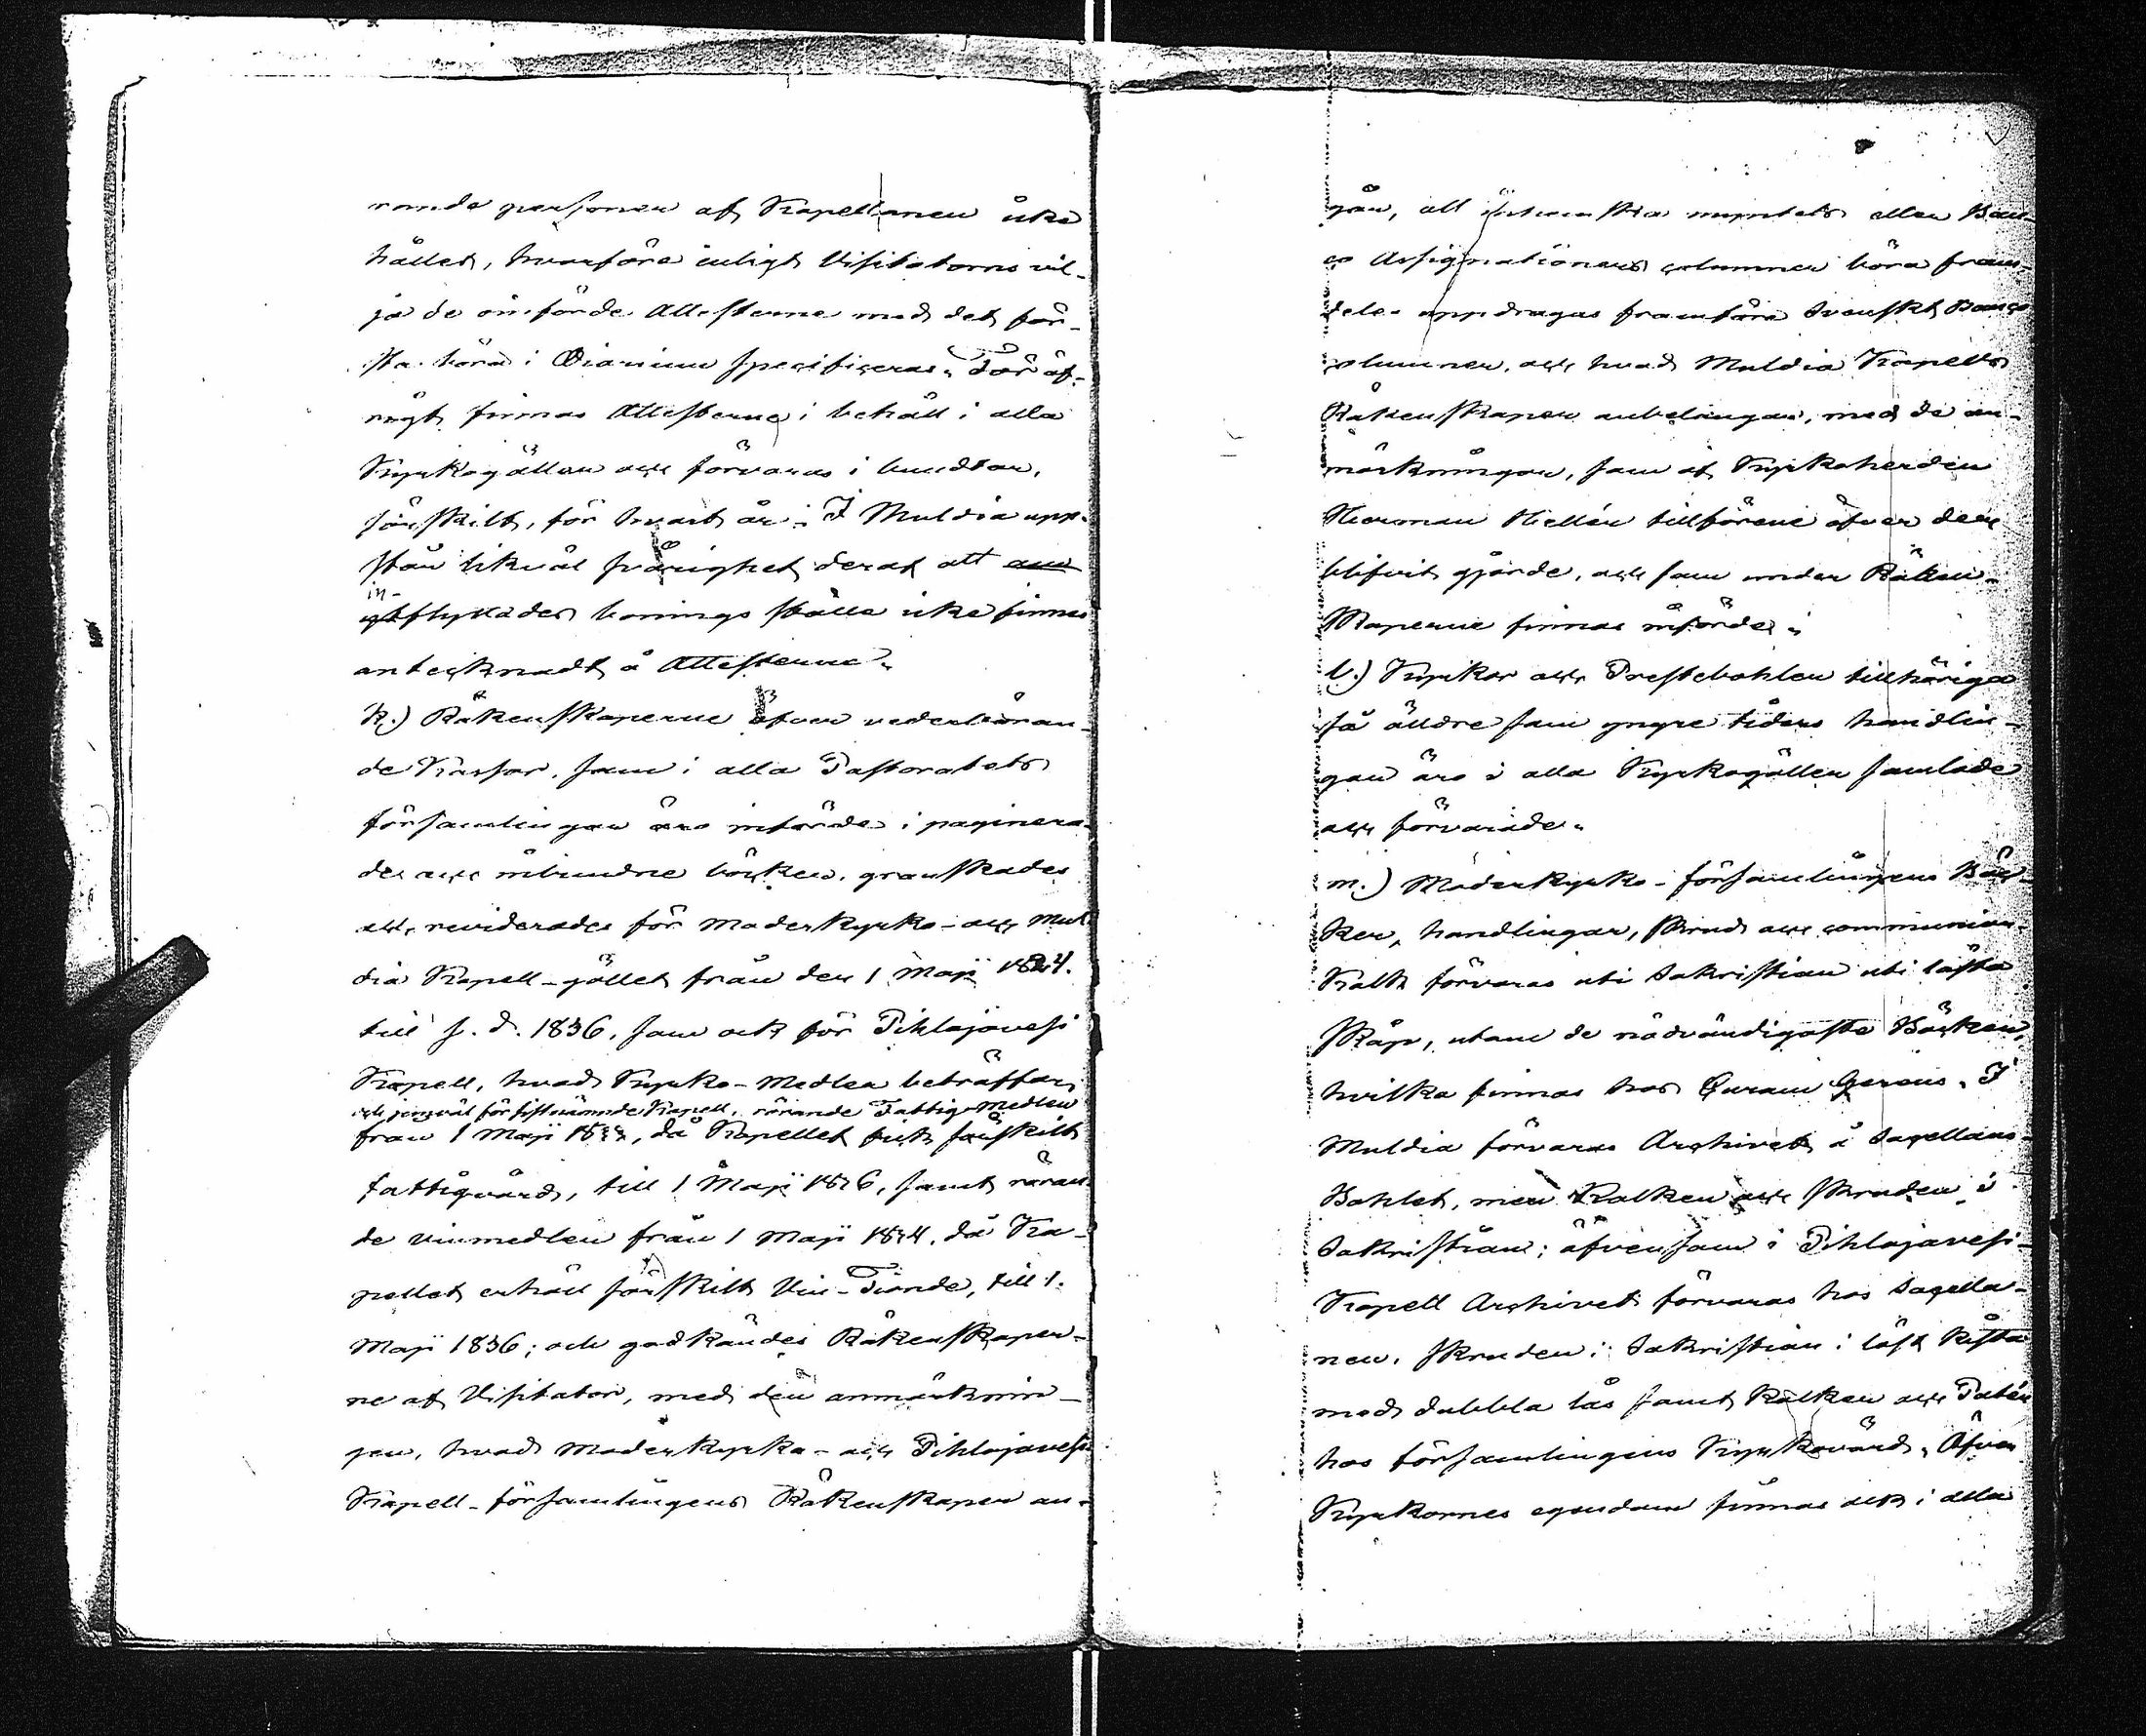 rande personer af Kapellanen icke
hållet, hvarföre enligt Visitatorns vil-
ja de oinförde Attesterne med det för-
sta böra i Diarium specificeras. För öf-
rigt finnas Attesterne i behåll i alla
Kyrkogällen och förvaras i bundtar,
särskilt, för hvart år. I Muldia upp-
står likväl svårighet deraf att
in-
flyttades bonings ställe icke finnes
antecknadt å Attesterne.
k.) Räkenskaperne öfver vederböran-
de Kassor, som i alla Pastoratets
församlingar äro införde i paginera-
de och inbundne böcker, granskades
och reviderades för Moderkyrko- och Mul-
dia Kapell-gället från den 1 Maji 1824.
till s. d. 1836, som ock för Pihlajavesi
Kapell, hvad Kyrko-Medlen beträffar,
och jemväl för sistnämnde Kapell, rörande Fattig-Medlen
från 1 Maji, då Kapellet fick särskilt
fattigvård, till 1 Maji 1836, samt röran-
de vinmedlen från 1 Maji, då Ka-
pellet erhöll särskilt Vin-Tionde, till 1.
Maji 1836; och godkändes Räkenskaper-
ne af Visitator, med den anmärknin-
gen, hvad Moderkyrko- och Pihlajavesi
Kapell-församlingens Räkenskaper an-
går, att myntets eller Ban-
co Assignationers columner böra fram-
deles uppdragas framföre Svenskt Banco
columner, och hvad Muldia Kapells
Räkenskaper anbelangar, med de an-
märkningar, som af Kyrkoherden
Herman Hellén tillförene öfver dem
blifvit gjorde, och som under Räken-
skaperne finnas införde.
l.) Kyrkor och Prestebohlen tillhöriga
så äldre som yngre tiders handlin-
gar äro i alla Kyrkogällen samlade
och förvarade.
m.) Moderkyrko-församlingens Böc-
ker, handlingar, skrud och communion
Kalk förvaras uti Sakristian uti låsta
skåp, utom de nödvändigaste Böcker,
hvilka finnas hos Curam Gerens. I
Muldia förvaras Archivet å Sacellans-
Bohlet, men Kalken och skruden i
Sakristian; äfvensom i Pihlajavesi
Kapell Archivet förvaras hos Sacella-
nen, skruden i Sakristian i låst kista
med dubbla lås samt Kalken och Patén
hos församlingens Kyrkovärd. Öfver
Kyrkornes egendom finnas ock i alla